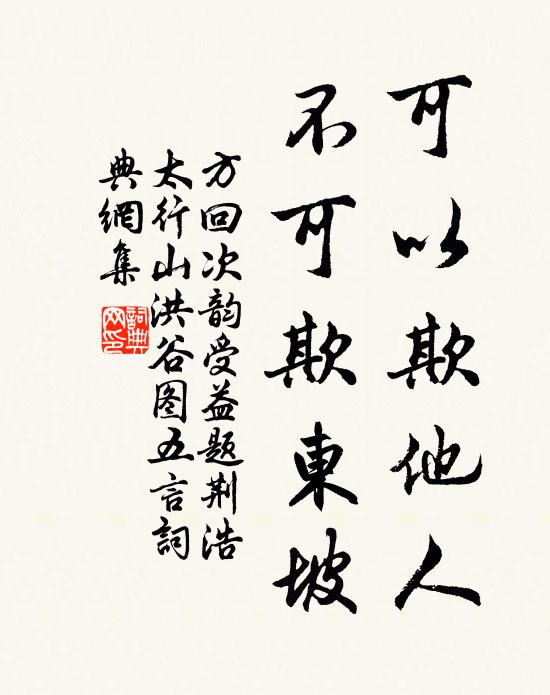 可以欺他人
不可欺東坡
方回次韵受益题荆浩
太行山洪谷图五言詞
典網集
詞典网印